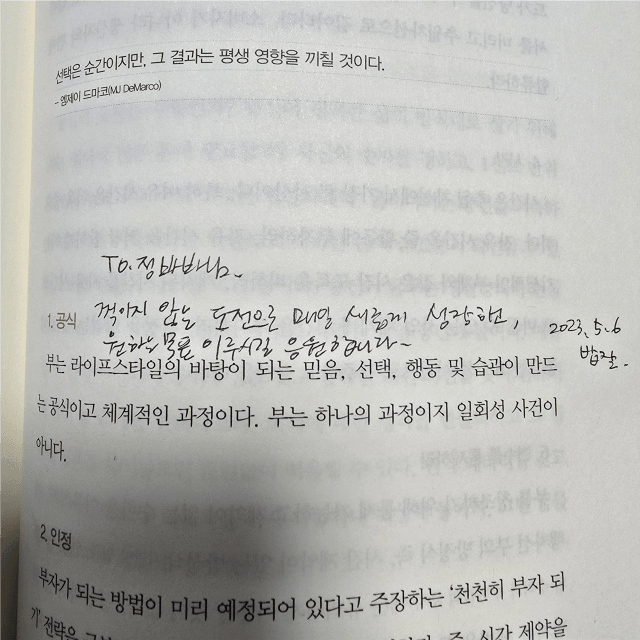 선택은 순간이지만, 그 결과는 평생 영향을 끼칠 것이다.
- 엠제이 드마코(MJ DeMarco)
To. 정바바님~
꺾이지 않는 도전으로 매일 새롭게 성장하면,
원하는 모든 이루시길 응원합니다~
2023. 5. 6
밥잘.
1. 공식
부는 라이프스타일의 바탕이 되는 믿음, 선택, 행동 및 습관이 만드
는 공식이고 체계적인 과정이다. 부는 하나의 과정이지 일회성 사건이
아니다.
2. 인정
부자가 되는 방법이 미리 예정되어 있다고 주장하는 '천천히 부자 되
기' 전략을
시간 제약을